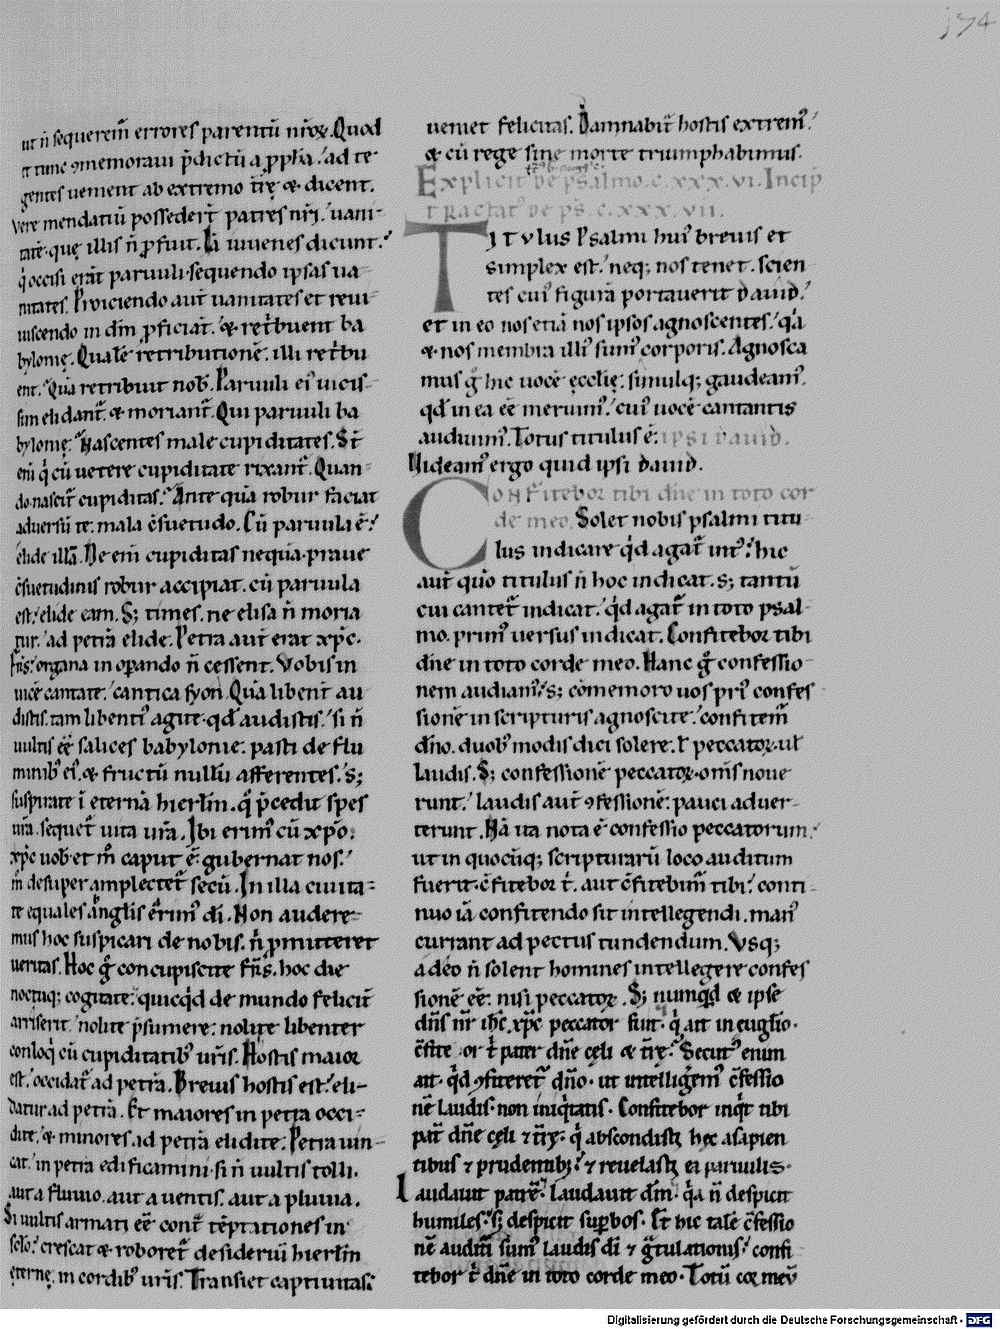 174
ut ñ sequerem̃ errores parentũ nr̃oꝝ. Quod
et tunc ꝯmemoraui p̃dictũ a ꝓph̃a. ad te
gentes uenient ab extremo tr̃ę & dicent.
Vere mendatiũ possedert̃ patres nr̃i. uani-
tatẽ. quę illis ñ ꝓfuit. Iã iuuenes dicunt.
q̇ occisi erãt paruuli. sequendo ipsas ua-
nitates. Proiciendo aut̃ uanitates et reui-
uiscendo in dm̃ ꝓficiãt. & ret̃buent ba
bylonię. Qualẽ retributionẽ. illi ret̃bu
ent. Quã retribuit nob̃. Paruuli ei᷒ uicis-
sim elidant̃. & moriant̃. Qui paruuli ba
bylonię. Nascentes male cupiditates. St̃
eni q̇ cũ uetere cupiditate rixant̃. Quan-
do nascit̃ cupiditas. Ante quã robur faciat
aduersũ te. mala c̃suetudo. Cũ paruula ẽ.
elide illã. Ne em̃ cupiditas nequã. praue
c̃suetudinis robur accipiat. cũ paruula
est. elide eam. S; times. ne elisa ñ moria
tur. ad petrã elide. Petra aut̃ erat xp̃c.
Fr̃s. organa in oꝑando ñ cessent. Vobis in
uicẽ cantate. cantica syon. Quã libent̃ au
distis. tam libenti᷒ agite. qd̃ audistis. si ñ
uultis eẽ salices babylonię. pasti de flu
minib᷒ ei᷒. & fructũ nullũ afferentes. S;
suspirate ĩ eternã hierl̃m. q̃ p̃cedit spes
ur̃a. sequet̃ uita ur̃a. Ibi erim᷒ cũ xp̃o.
xp̃c uob᷒ et m̃ caput ẽ. gubernat nos.
m̃ desuper amplectet̃ secũ. In illa ciuita-
te equales angl̃is erim᷒ dĩ. Non audere-
mus hoc suspicari de nobis. ñ ꝓmitteret
ueritas. Hoc g̃ concupiscite fr̃s. hoc die
noctuq; cogitate. quicqd̃ de mundo felicit̃
arriserit. nolite p̃sumere. nolite libenter
conloq̇ cũ cupiditatib᷒ ur̃is. Hostis maior
est. occidat̃ ad petrã. Breuis hostis est. eli-
datur ad petrã. Et maiores in petra occi-
dite. & minores ad petrã elidite. Petra uin-
cat. in petra edificamini. si ñ uultis tolli.
aut a fluuio. aut a uentis. aut a pluuia.
Si uultis armati eẽ cont̃ tẽptationes in
sęlo. crescat & roboret̃ desideriũ hierl̃m
ęternę. in cordib᷒ ur̃is. Transiet captiuitas.
ueniet felicitas. Damnabit̃ hostis extrem᷒.
& cũ rege sine morte triumphabimus.
Explicit de psalmo. c.xxx.vi. Incip̃
tractat᷒ de ps̃. c.xxx.vii.
Titvlus Psalmi hui᷒ breuis et
simplex est. neq; nos tenet. scien
tes cui᷒ figurã portauerit dauid.
et in eo nos etiã nos ipsos agnoscentes. q̃a
& nos membra illi᷒ sum᷒ corporis. Agnosca
mus g̃ hic uocẽ ęcclię. simulq; gaudeam᷒.
qd̃ in ea eẽ meruim᷒. cui᷒ uocẽ cantantis
audiuim᷒. Totus titulus ẽ. ipsi dauid.
Videam᷒ ergo quid ipsi dauid.
Confitebor tibi dñe in toto cor
de meo. Solet nobis psalmi titu
lus indicare qd̃ agat̃ int᷒. hic
aut̃ quo titulus ñ hoc indicat. s; tantũ
cui cantet̃ indicat. qd̃ agat̃ in toto psal-
mo. prim᷒ uersus indicat. Confitebor tibi
dñe in toto corde meo. Hanc g̃ confessio-
nem audiam᷒. S; cõmemoro uos pri᷒ confes
sionẽ in scripturis agnoscite. confitem̃
dño. duob᷒ modis dici solere. t̃ peccatoꝝ. ul̃
laudis. S; confessionẽ peccatoꝝ. om̃s noue
runt. laudis aut̃ ꝯfessionẽ. pauci aduer-
terunt. Nã ita nota ẽ confessio peccatorum.
ut in quocũq; scripturarũ loco auditum
fuerit. c̃fitebor t̃. aut c̃fitebim̃ tibi. conti-
nuo iã confitendo sit intellegendi. man᷒
currant ad pectus tundendum. Vsq;
adeo ñ solent homines intellegere confes
sionẽ eẽ. nisi peccatoꝝ. S; numqd̃ & ipse
dñs nr̃ ih̃c xp̃c peccator fuit. q̇ ait in euglĩo.
c̃fiteor t̃ pater dñe cęli & tr̃ę. Secut᷒ enim
ait. qd̃ ꝯfiteret̃ dño. ut intelligem᷒ c̃fessio
nẽ laudis. non iniq̇tatis. Confitebor inqt̃ tibi
pat̃ dñe cęli ⁊ tr̃ę. q̇ abscondisti hęc a sapien
tibus ⁊ prudentib;. ⁊ reuelasti ea paruulis.
Laudauit patrẽ. laudauit dm̃. q̃a ñ despicit
humiles. s; despicit suꝑbos. Et hic talẽ c̃fessio
nẽ audituri sum᷒ laudis dĩ ⁊ gr̃tulationis. confi-
tebor t̃ dñe in toto corde meo. Totũ cor meũ
Digitalisierung gefördert durch die Deutsche Forschungsgemeinschaft - DFG